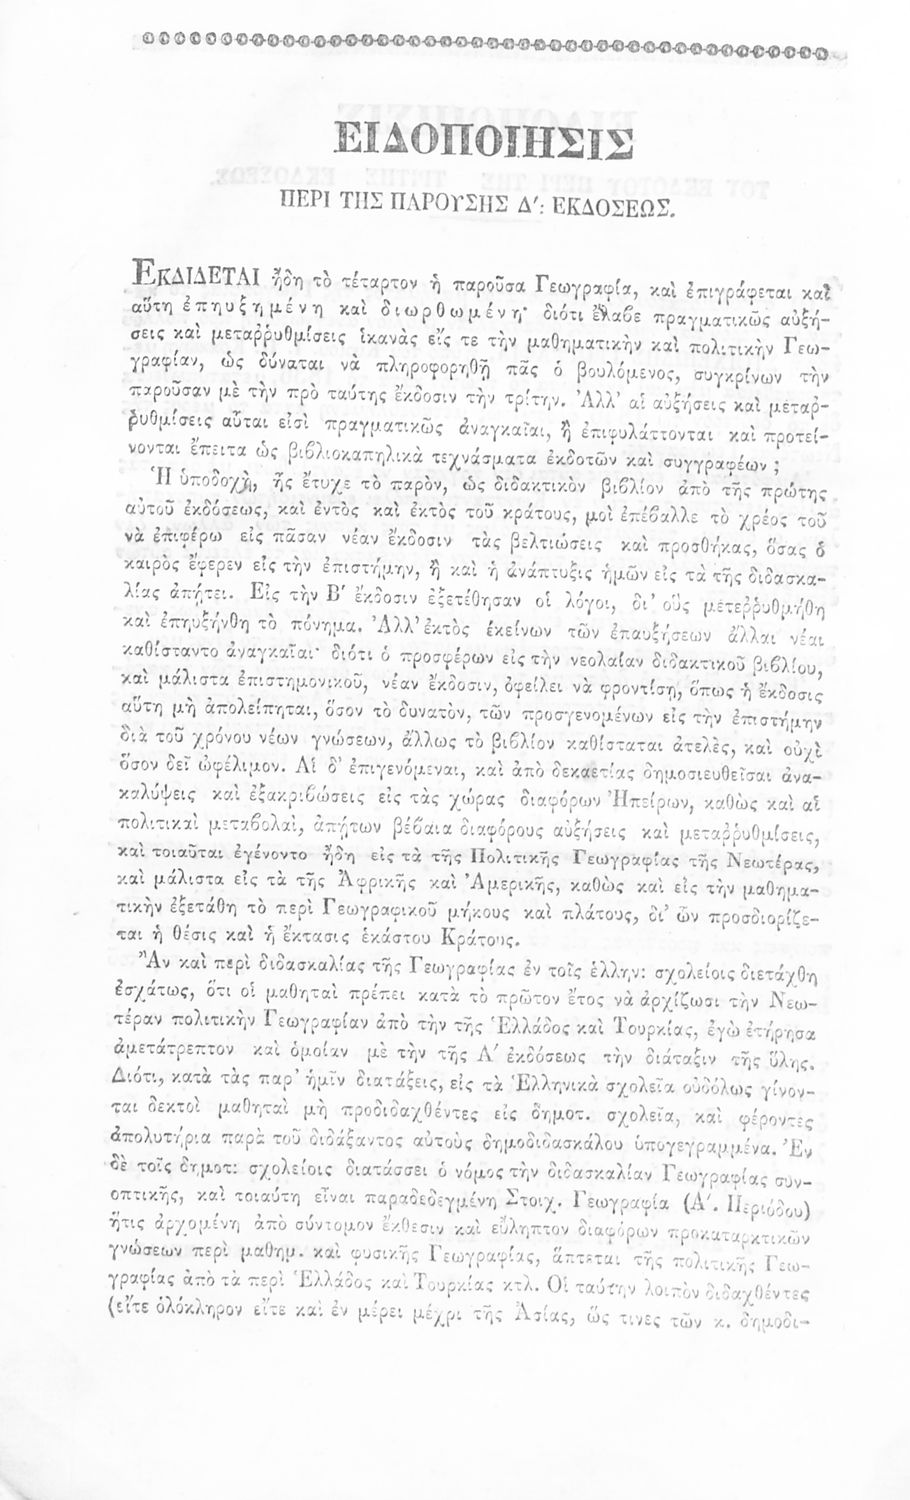 ΕΙΔΟΠΟΙΗΣΙΣ
ΠΕΡΙ ΤΗΣ ΠΑΡΟΥΣΗΣ Δ′: ΕΚΔΟΣΕΩΣ.
ΕΚΔΙΔΕΤΑΙ ἤδη τὸ τέταρτον ἡ παροῦσα Γεωγραφία, καὶ ἐπιγράφεται καὶ
αὕτη ἐπηυξημένη καὶ διωρθωμένη· διότι ἔλαβε πραγματικῶς αὐξή-
σεις καὶ μεταῤῥυθμίσεις ἱκανὰς εἴς τε τὴν μαθηματικὴν καὶ πολιτικὴν Γεω-
γραφίαν, ὡς δύναται νὰ πληροφορηθῇ πᾶς ὁ βουλόμενος, συγκρίνων τὴν
παροῦσαν μὲ τὴν πρὸ ταύτης ἔκδοσιν τὴν τρίτην. Ἀλλ’ αἱ αὐξήσεις καὶ μεταῤ-
ῥυθμίσεις αὗται εἰσὶ πραγματικῶς ἀναγκαῖαι, ἢ ἐπιφυλάττονται καὶ προτεί-
νονται ἔπειτα ὡς βιβλιοκαπηλικὰ τεχνάσματα ἐκδοτῶν καὶ συγγραφέων ;
Ἡ ὑποδοχὴ, ἧς ἔτυχε τὸ παρὸν, ὡς διδακτικὸν βιβλίον ἀπὸ τῆς πρώτης
αὐτοῦ ἐκδόσεως, καὶ ἐντὸς καὶ ἐκτὸς τοῦ κράτους, μοὶ ἐπέβαλλε τὸ χρέος τοῦ
νὰ ἐπιφέρω εἰς πᾶσαν νέαν ἔκδοσιν τὰς βελτιώσεις καὶ προσθήκας, ὅσας ὁ
καιρὸς ἔφερεν εἰς τὴν ἐπιστήμην, ἢ καὶ ἡ ἀνάπτυξις ἡμῶν εἰς τὰ τῆς διδασκα-
λίας ἀπῄτει. Εἰς τὴν Β′ ἔκδοσιν ἐξετέθησαν οἱ λόγοι, δι’ οὓς μετεῤῥυθμήθη
καὶ ἐπηυξήνθη τὸ πόνημα. Ἀλλ’ ἐκτὸς ἐκείνων τῶν ἐπαυξήσεων ἄλλαι νέαι
καθίσταντο ἀναγκαῖαι· διότι ὁ προσφέρων εἰς τὴν νεολαίαν διδακτικοῦ βιβλίου,
καὶ μάλιστα ἐπιστημονικοῦ, νέαν ἔκδοσιν, ὀφείλει νὰ φροντίσῃ, ὅπως ἡ ἔκδοσις
αὕτη μὴ ἀπολείπηται, ὅσον τὸ δυνατὸν, τῶν προσγενομένων εἰς τὴν ἐπιστήμην
διὰ τοῦ χρόνου νέων γνώσεων, ἄλλως τὸ βιβλίον καθίσταται ἀτελὲς, καὶ οὐχὶ
ὅσον δεῖ ὠφέλιμον. Αἱ δ’ ἐπιγενόμεναι, καὶ ἀπὸ δεκαετίας δημοσιευθεῖσαι ἀνα-
καλύψεις καὶ ἐξακριβώσεις εἰς τὰς χώρας διαφόρων Ἠπείρων, καθὼς καὶ αἱ
πολιτικαὶ μεταβολαὶ, ἀπῄτων βέβαια διαφόρους αὐξήσεις καὶ μεταῤῥυθμίσεις,
καὶ τοιαῦται ἐγένοντο ἤδη εἰς τὰ τῆς Πολιτικῆς Γεωγραφίας τῆς Νεωτέρας,
καὶ μάλιστα εἰς τὰ τῆς Ἀφρικῆς καὶ Ἀμερικῆς, καθὼς καὶ εἰς τὴν μαθημα-
τικὴν ἐξετάθη τὸ περὶ Γεωγραφικοῦ μήκους καὶ πλάτους, δι’ ὧν προσδιορίζε-
ται ἡ θέσις καὶ ἡ ἔκτασις ἑκάστου Κράτους.
Ἂν καὶ περὶ διδασκαλίας τῆς Γεωγραφίας ἐν τοῖς ἑλλην: σχολείοις διετάχθη
ἐσχάτως, ὅτι οἱ μαθηταὶ πρέπει κατὰ τὸ πρῶτον ἔτος νὰ ἀρχίζωσι τὴν Νεω-
τέραν πολιτικὴν Γεωγραφίαν ἀπὸ τὴν τῆς Ἑλλάδος καὶ Τουρκίας, ἐγὼ ἐτήρησα
ἀμετάτρεπτον καὶ ὁμοίαν μὲ τὴν τῆς Α′ ἐκδόσεως τὴν διάταξιν τῆς ὕλης.
Διότι, κατὰ τὰς παρ’ ἡμῖν διατάξεις, εἰς τὰ Ἑλληνικὰ σχολεῖα οὐδόλως γίνον-
ται δεκτοὶ μαθηταὶ μὴ προδιδαχθέντες εἰς δημοτ. σχολεῖα, καὶ φέροντες
ἀπολυτήρια παρὰ τοῦ διδάξαντος αὐτοὺς δημοδιδασκάλου ὑπογεγραμμένα. Ἐν
δὲ τοῖς δημοτ: σχολείοις διατάσσει ὁ νόμος τὴν διδασκαλίαν Γεωγραφίας συν-
οπτικῆς, καὶ τοιαύτη εἶναι παραδεδεγμένη Στοιχ. Γεωγραφία (Α′. Περιόδου)
ἥτις ἀρχομένη ἀπὸ σύντομον ἔκθεσιν καὶ εὔληπτον διαφόρων προκαταρκτικῶν
γνώσεων περὶ μαθημ. καὶ φυσικῆς Γεωγραφίας, ἅπτεται τῆς πολιτικῆς Γεω-
γραφίας ἀπὸ τὰ περὶ Ἑλλάδος καὶ Τουρκίας κτλ. Οἱ ταύτην λοιπὸν διδαχθέντες
(εἴτε ὁλόκληρον εἴτε καὶ ἐν μέρει μέχρι τῆς Ἀσίας, ὥς τινες τῶν κ. δημοδι-